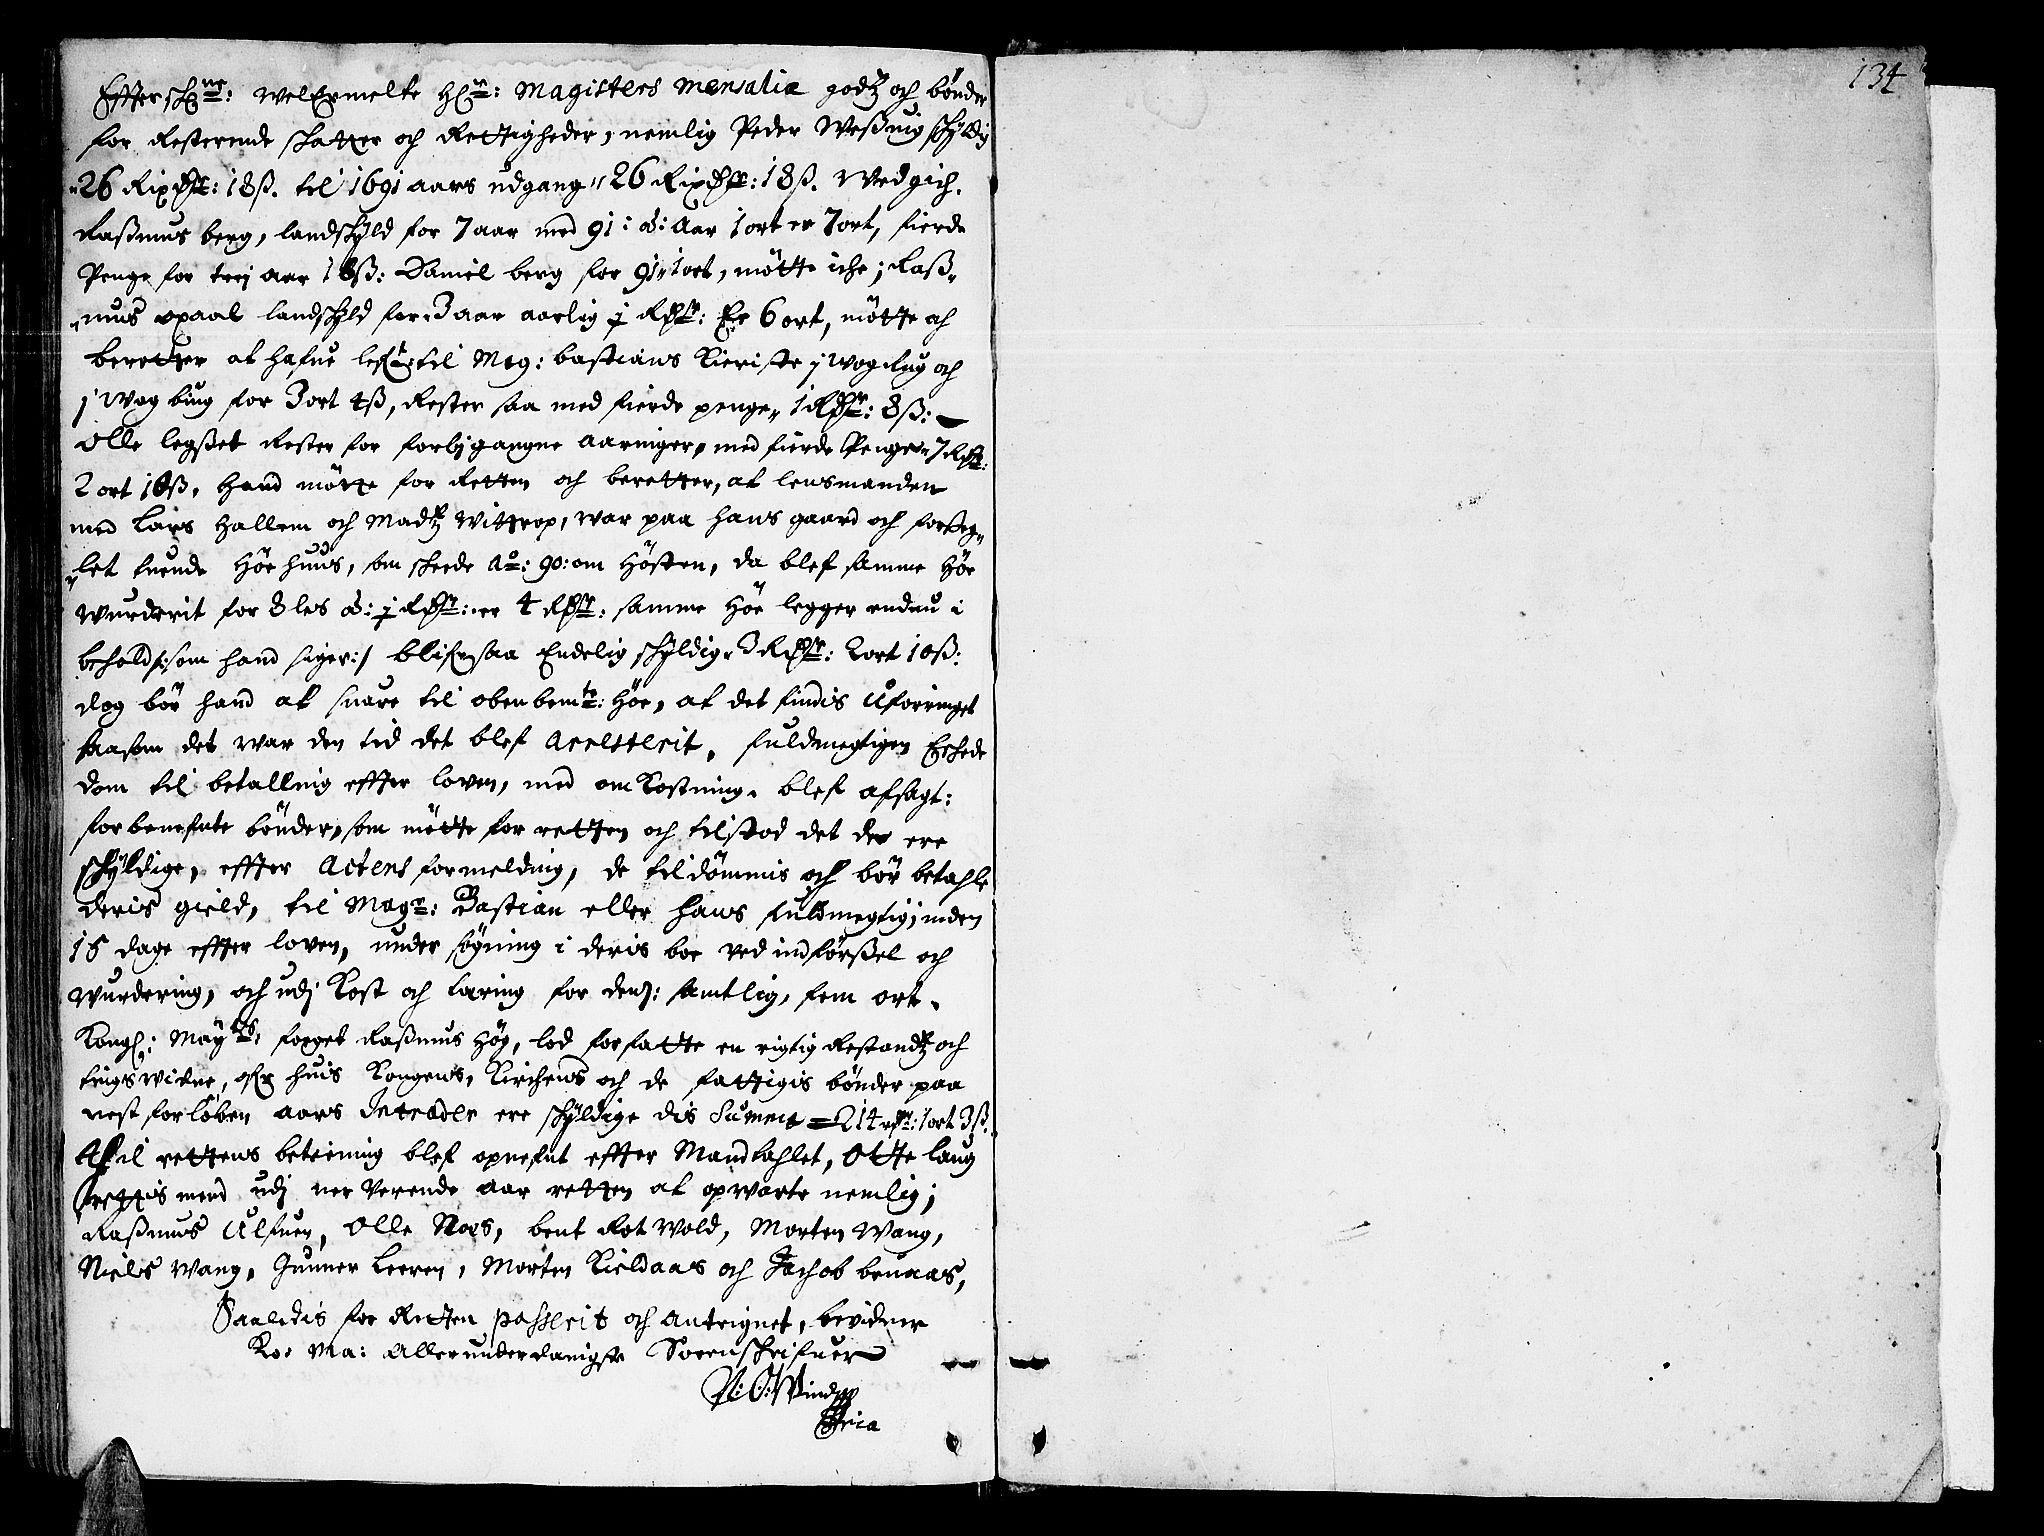 134
Effterschne: welErmelte Hrn: Magisters Mensaliæ godtz och bönder
for Resterende skatter och Rettigheder, nemlig Peder Weßuig schyldig
26 Rixdlr: 18ß. til 1691 aars udgang 26 Rixdlr: 18ß. Wedgich.
Raßmus berg, landschyld for 7 aar med 91: á: Aar 1 ort er 7 ort, fierde
Penge for trej aar 18ß: Daniel berg for 91 1 ort, mötte iche; Raß-
mus opaal landschyld for 3 aar aarlig ½ Rdlr: Er 6 ort, mötte och
beretter at hafue lefu: til Mag: bastians Kieriste j wog Rug och
j Wog biug for 3 ort 4ß, Rester saa med fierde penge 1 Rdlr: 8ß:
Olle legßet Rester for forbigangne aaringer, med fierde Penge 7 Rdlr:
2 ort 18ß, Hand mötte for Retten och beretter, at lensmanden
med Lars Hallem och Madtz Wittrop, war paa hans gaard och forseg-
let tuende Höe huus, som scheede Ao: 90: om Hösten, da blef samme Höe
wurderit for 8 les á: ½ Rdlr: er 4 Rdlr: samme Höe legger endnu i
behold /: som hand siger:/ blifr saa Endelig schyldig 3 Rdlr: 2 ort 18ß:
dog bör hand at suare til obenbemte: Höe, at det findis Uforringet
saasom det war den tid det blef Arresterit, fuldmegtigen Eschede
dom til betalling effter loven, med omKostning. blef afsagt:
forbenefnte bönder, som mötte for retten och tilstod det de ere
schyldige, effter Actens formelding, de tildömmis och bör betahle
deris gield, til Magr: Bastian eller hans fuldmegtig; inden
15 dage effter loven, under sögning i deris boe ved indförßel och
wurdering, och udj Kost och taring for dend: samtlig, fem ort.
Kongl: Mayts: foeget Raßmus Höy, lod forfatte en rigtig Restandtz och
tingswidne, ofr huis Kongens, Kirchens och de fattigis bönder paa
nest forløben aars Intrader ere schyldige dis Summa = 214 rdr: 1 ort 3ß.
till rettens betiening blef opnefnt effter Mandtahlet, Otte laug
rettis mend udj nerverende aar retten at opwarte nemlig;
Raßmus Ulfuen, Olle Noes, bent Rotwold, Morten Wang,
Niels Wang, Gunner Leeren, Morten Kieldaas och Jachob bruaas,
Saaledis for Retten passerit och anteignet, bevidner
Ko: Ma: Allerunderdanigste Sorenschrifuer